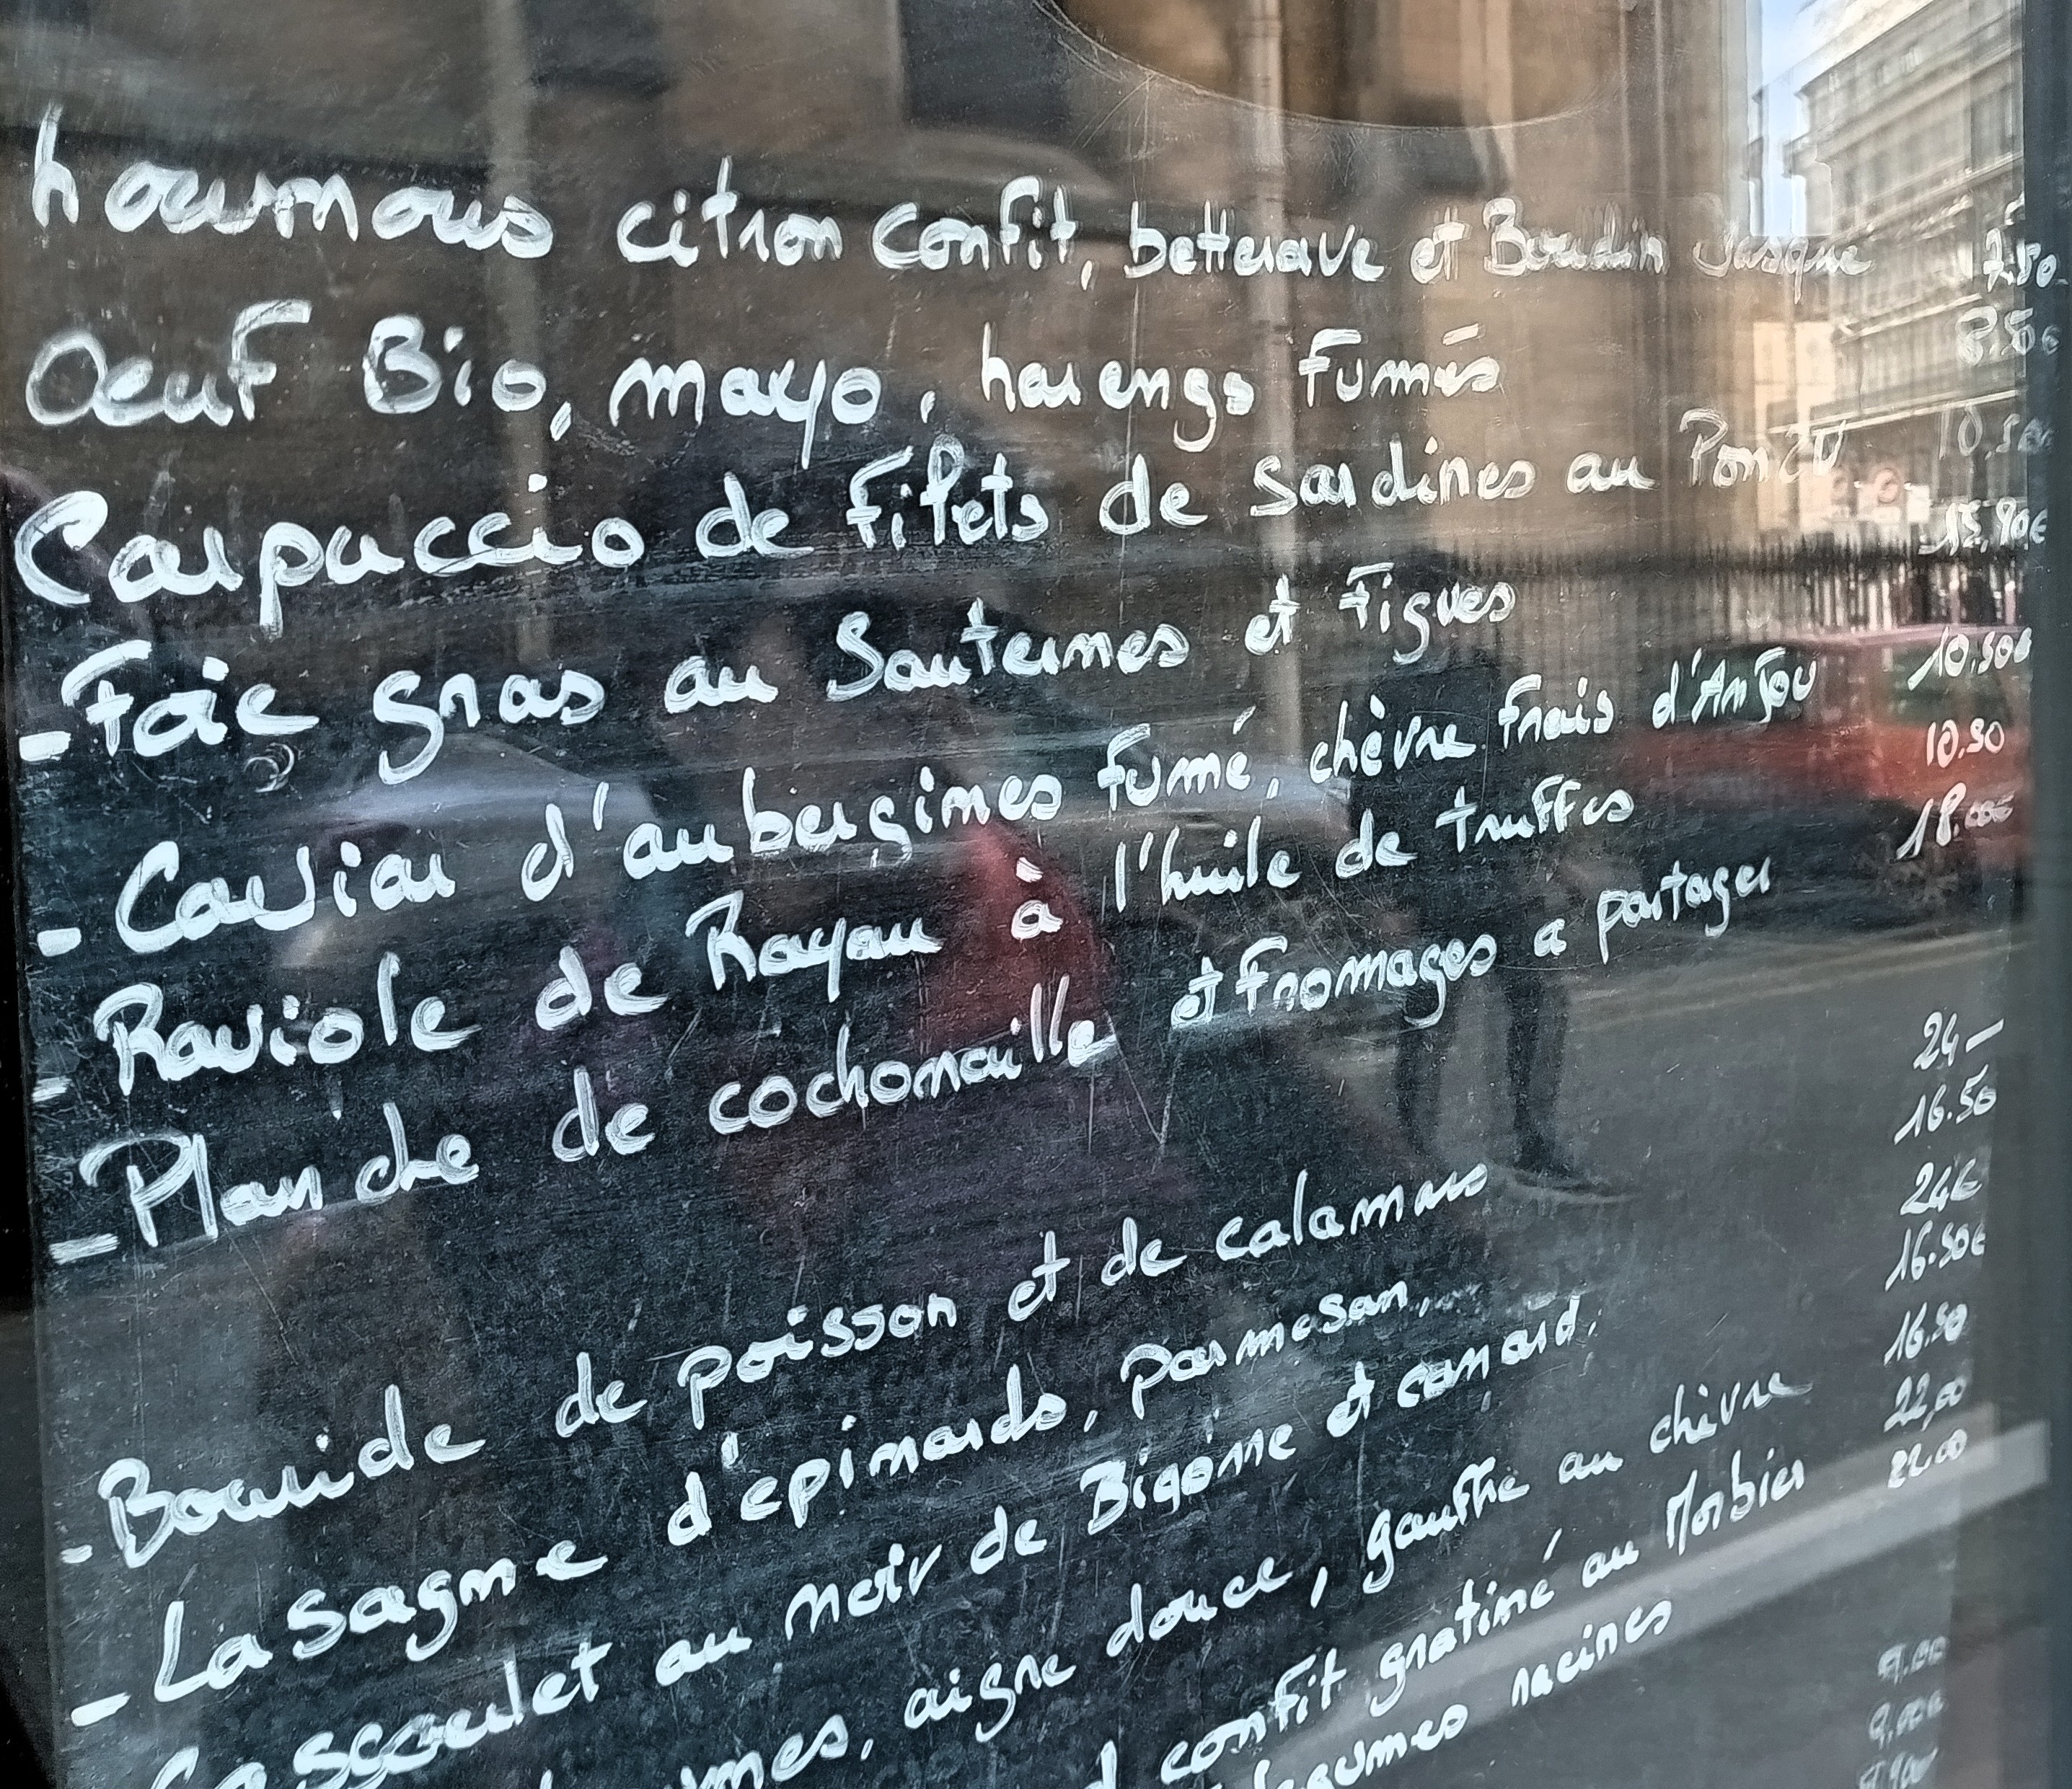 houmous citron confit, betterave et Boudin Basque 7.50
Oeuf Bio, mayo, harengs fumés 8.50€
Carpaccio de filets de sardines au Ponzu 10.50
- Foie gras au Sauternes et Figues 15,90€
- Caviar d'aubergines fumé, chèvre frais d'Anjou 10.50€
- Raviole de Royan à l'huile de truffes 10.50
- Planche de cochonaille et fromages a partager 18.00€
- Bouride de poisson et de calamars 24-
- Lasagne d'épinards, parmesan, 16.50
Cassoulet au noir de Bigorre et canard. 24€
aigre douce, gauffre au chèvre 16.50€
confit gratiné au Morbier 16.50
racines 22,00
22.00
9.00
9.00€